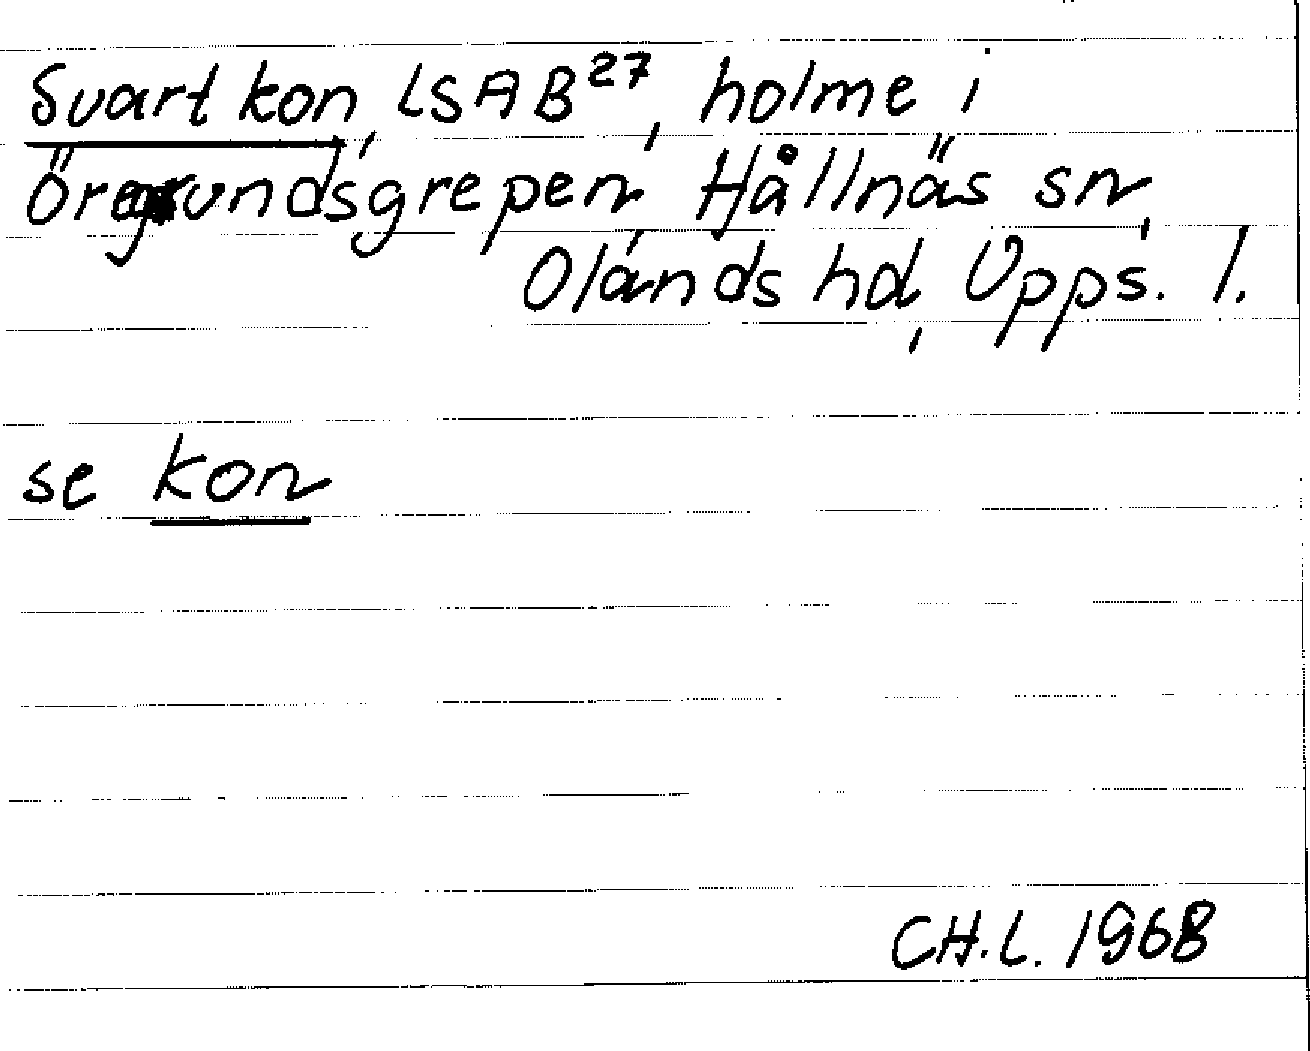 Svartkon, LSAB27, holme i
Öregrundsgrepen, Hållnäs sn,
Olands hd, Upps. l.
se kon
CH.L. 1968